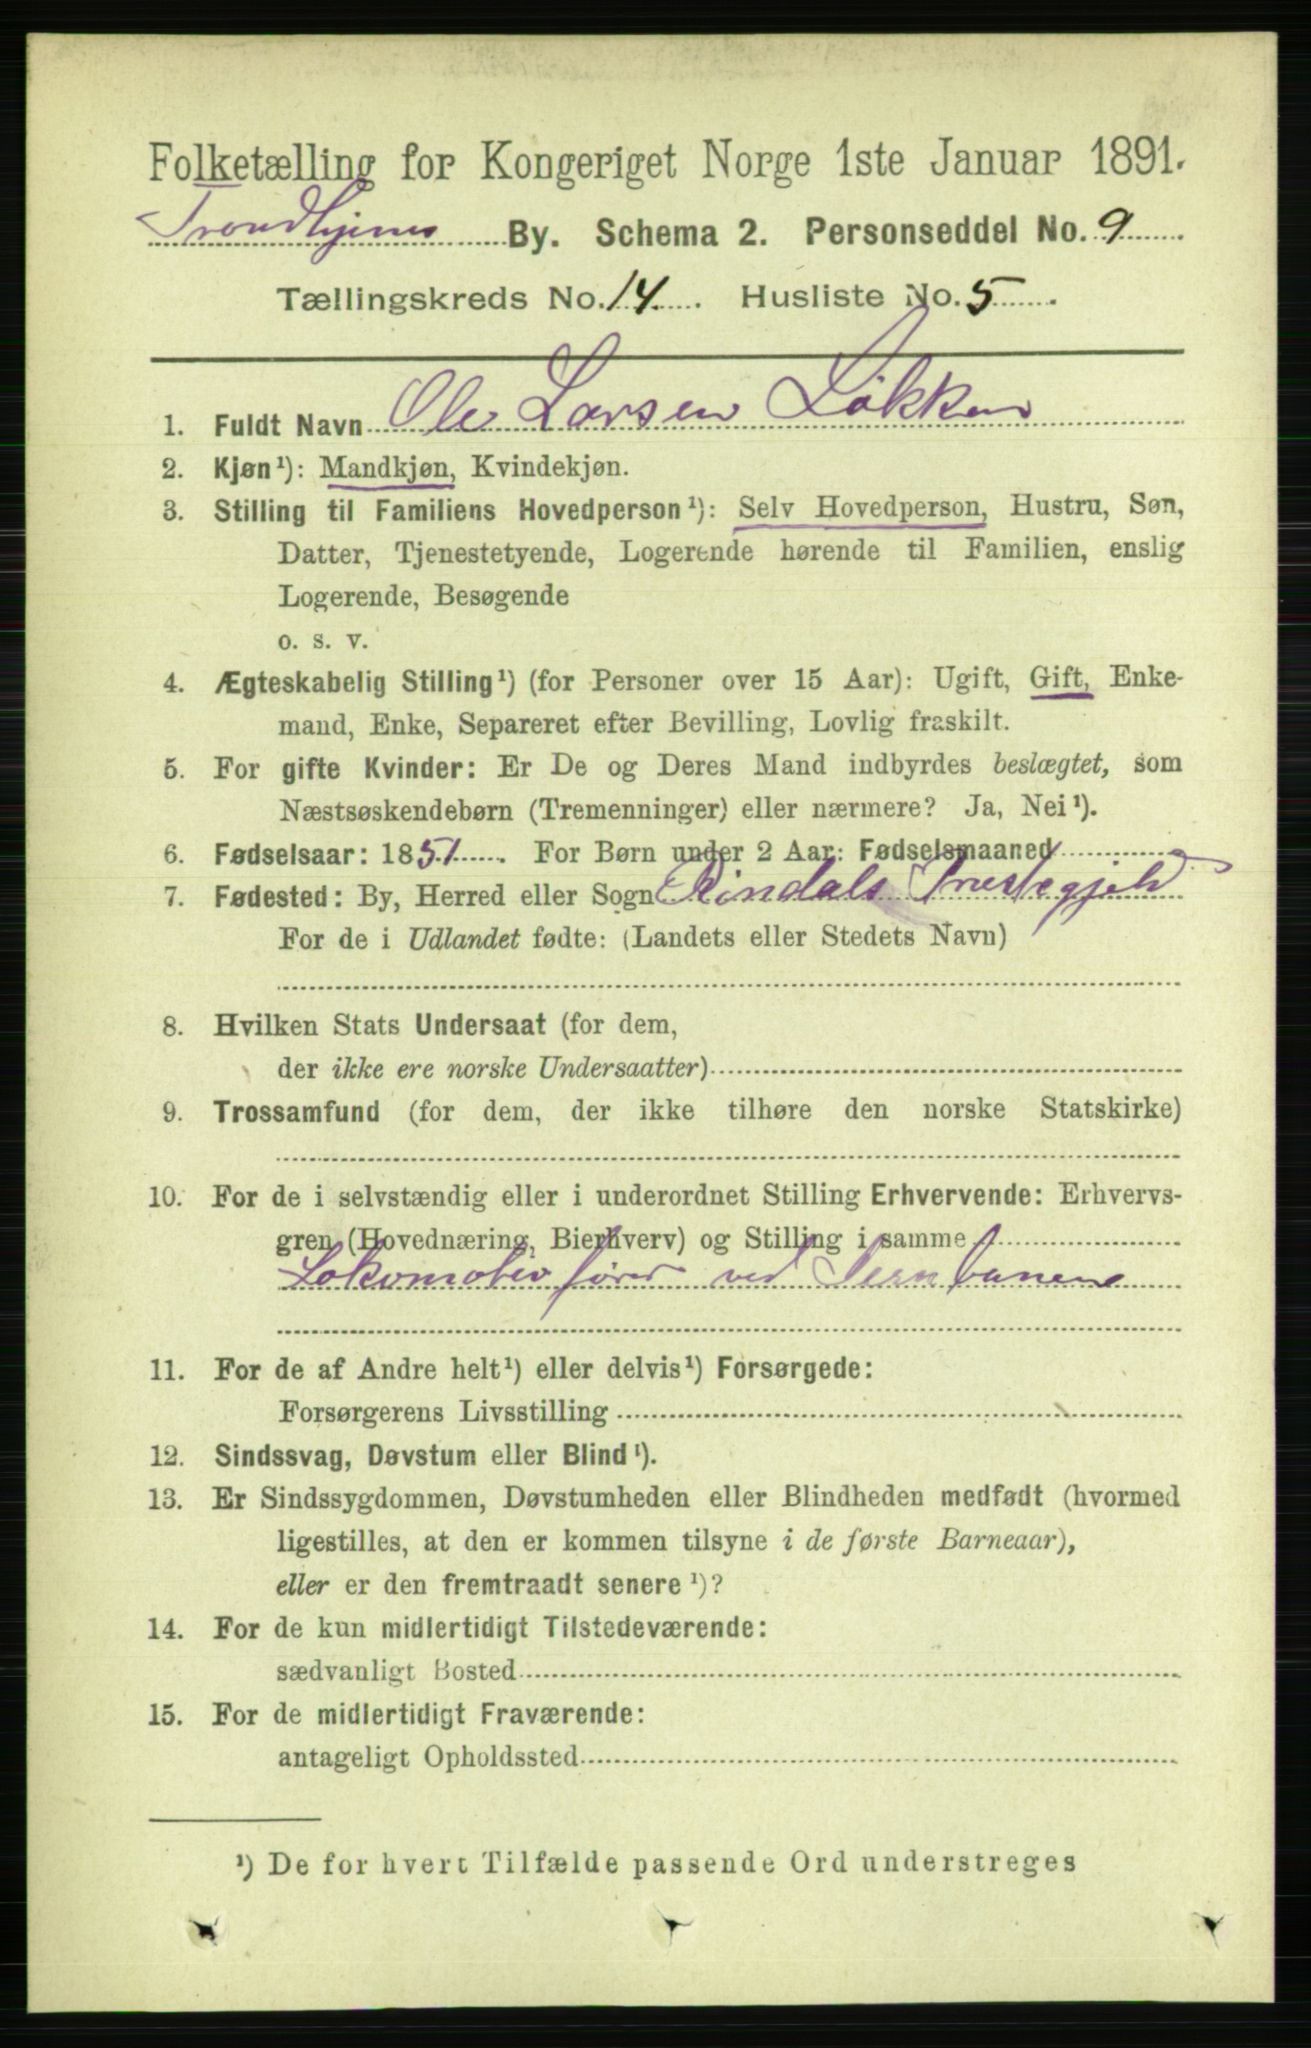 Folketælling for Kongeriget Norge 1ste Januar 1891.
Trondhjems By. Schema 2. Personseddel No. 9
Tællingskreds No. 14. Husliste No. 5.
1. Fuldt Navn Ole Larsen Løkken
2. Kjøn¹): Mandkjøn, Kvindekjøn.
3. Stilling til Familiens Hovedperson¹): Selv Hovedperson, Hustru, Søn,
Datter, Tjenestetyende, Logerende hørende til Familien, enslig
Logerende, Besøgende
o. s. v.
4. Ægteskabelig Stilling¹) (for Personer over 15 Aar): Ugift, Gift, Enke-
mand, Enke, Separeret efter Bevilling, Lovlig fraskilt.
5. For gifte Kvinder: Er De og Deres Mand indbyrdes beslægtet, som
Næstsøskendebørn (Tremenninger) eller nærmere? Ja, Nei¹).
6. Fødselsaar: 1851. For Børn under 2 Aar: Fødselsmaaned
7. Fødested: By, Herred eller Sogn Rindals Præstegjeld
For de i Udlandet fødte: (Landets eller Stedets Navn)
8. Hvilken Stats Undersaat (for dem,
der ikke ere norske Undersaatter)
9. Trossamfund (for dem, der ikke tilhøre den norske Statskirke)
10. For de i selvstændig eller i underordnet Stilling Erhvervende: Erhvervs-
gren (Hovednæring, Bierhverv) og Stilling i samme
Lokomotivfører ved Jernbanen
11. For de af Andre helt¹) eller delvis¹) Forsørgede:
Forsørgerens Livsstilling
12. Sindssvag, Døvstum eller Blind¹).
13. Er Sindssygdommen, Døvstumheden eller Blindheden medfødt (hvormed
ligestilles, at den er kommen tilsyne i de første Barneaar),
eller er den fremtraadt senere¹)?
14. For de kun midlertidigt Tilstedeværende:
sædvanligt Bosted
15. For de midlertidigt Fraværende:
antageligt Opholdssted
¹) De for hvert Tilfælde passende Ord understreges